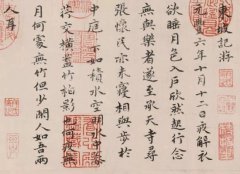 東坡記
元豐六年十月十二日夜解衣
欲睡月色入戶欣然起行念
無與樂者遂至承天寺尋
張懷民亦未寢相與步於
中庭下如積水空明水中藻
荇交橫蓋竹柏影也何夜無
月何處無竹但少閒人如吾兩
人耳